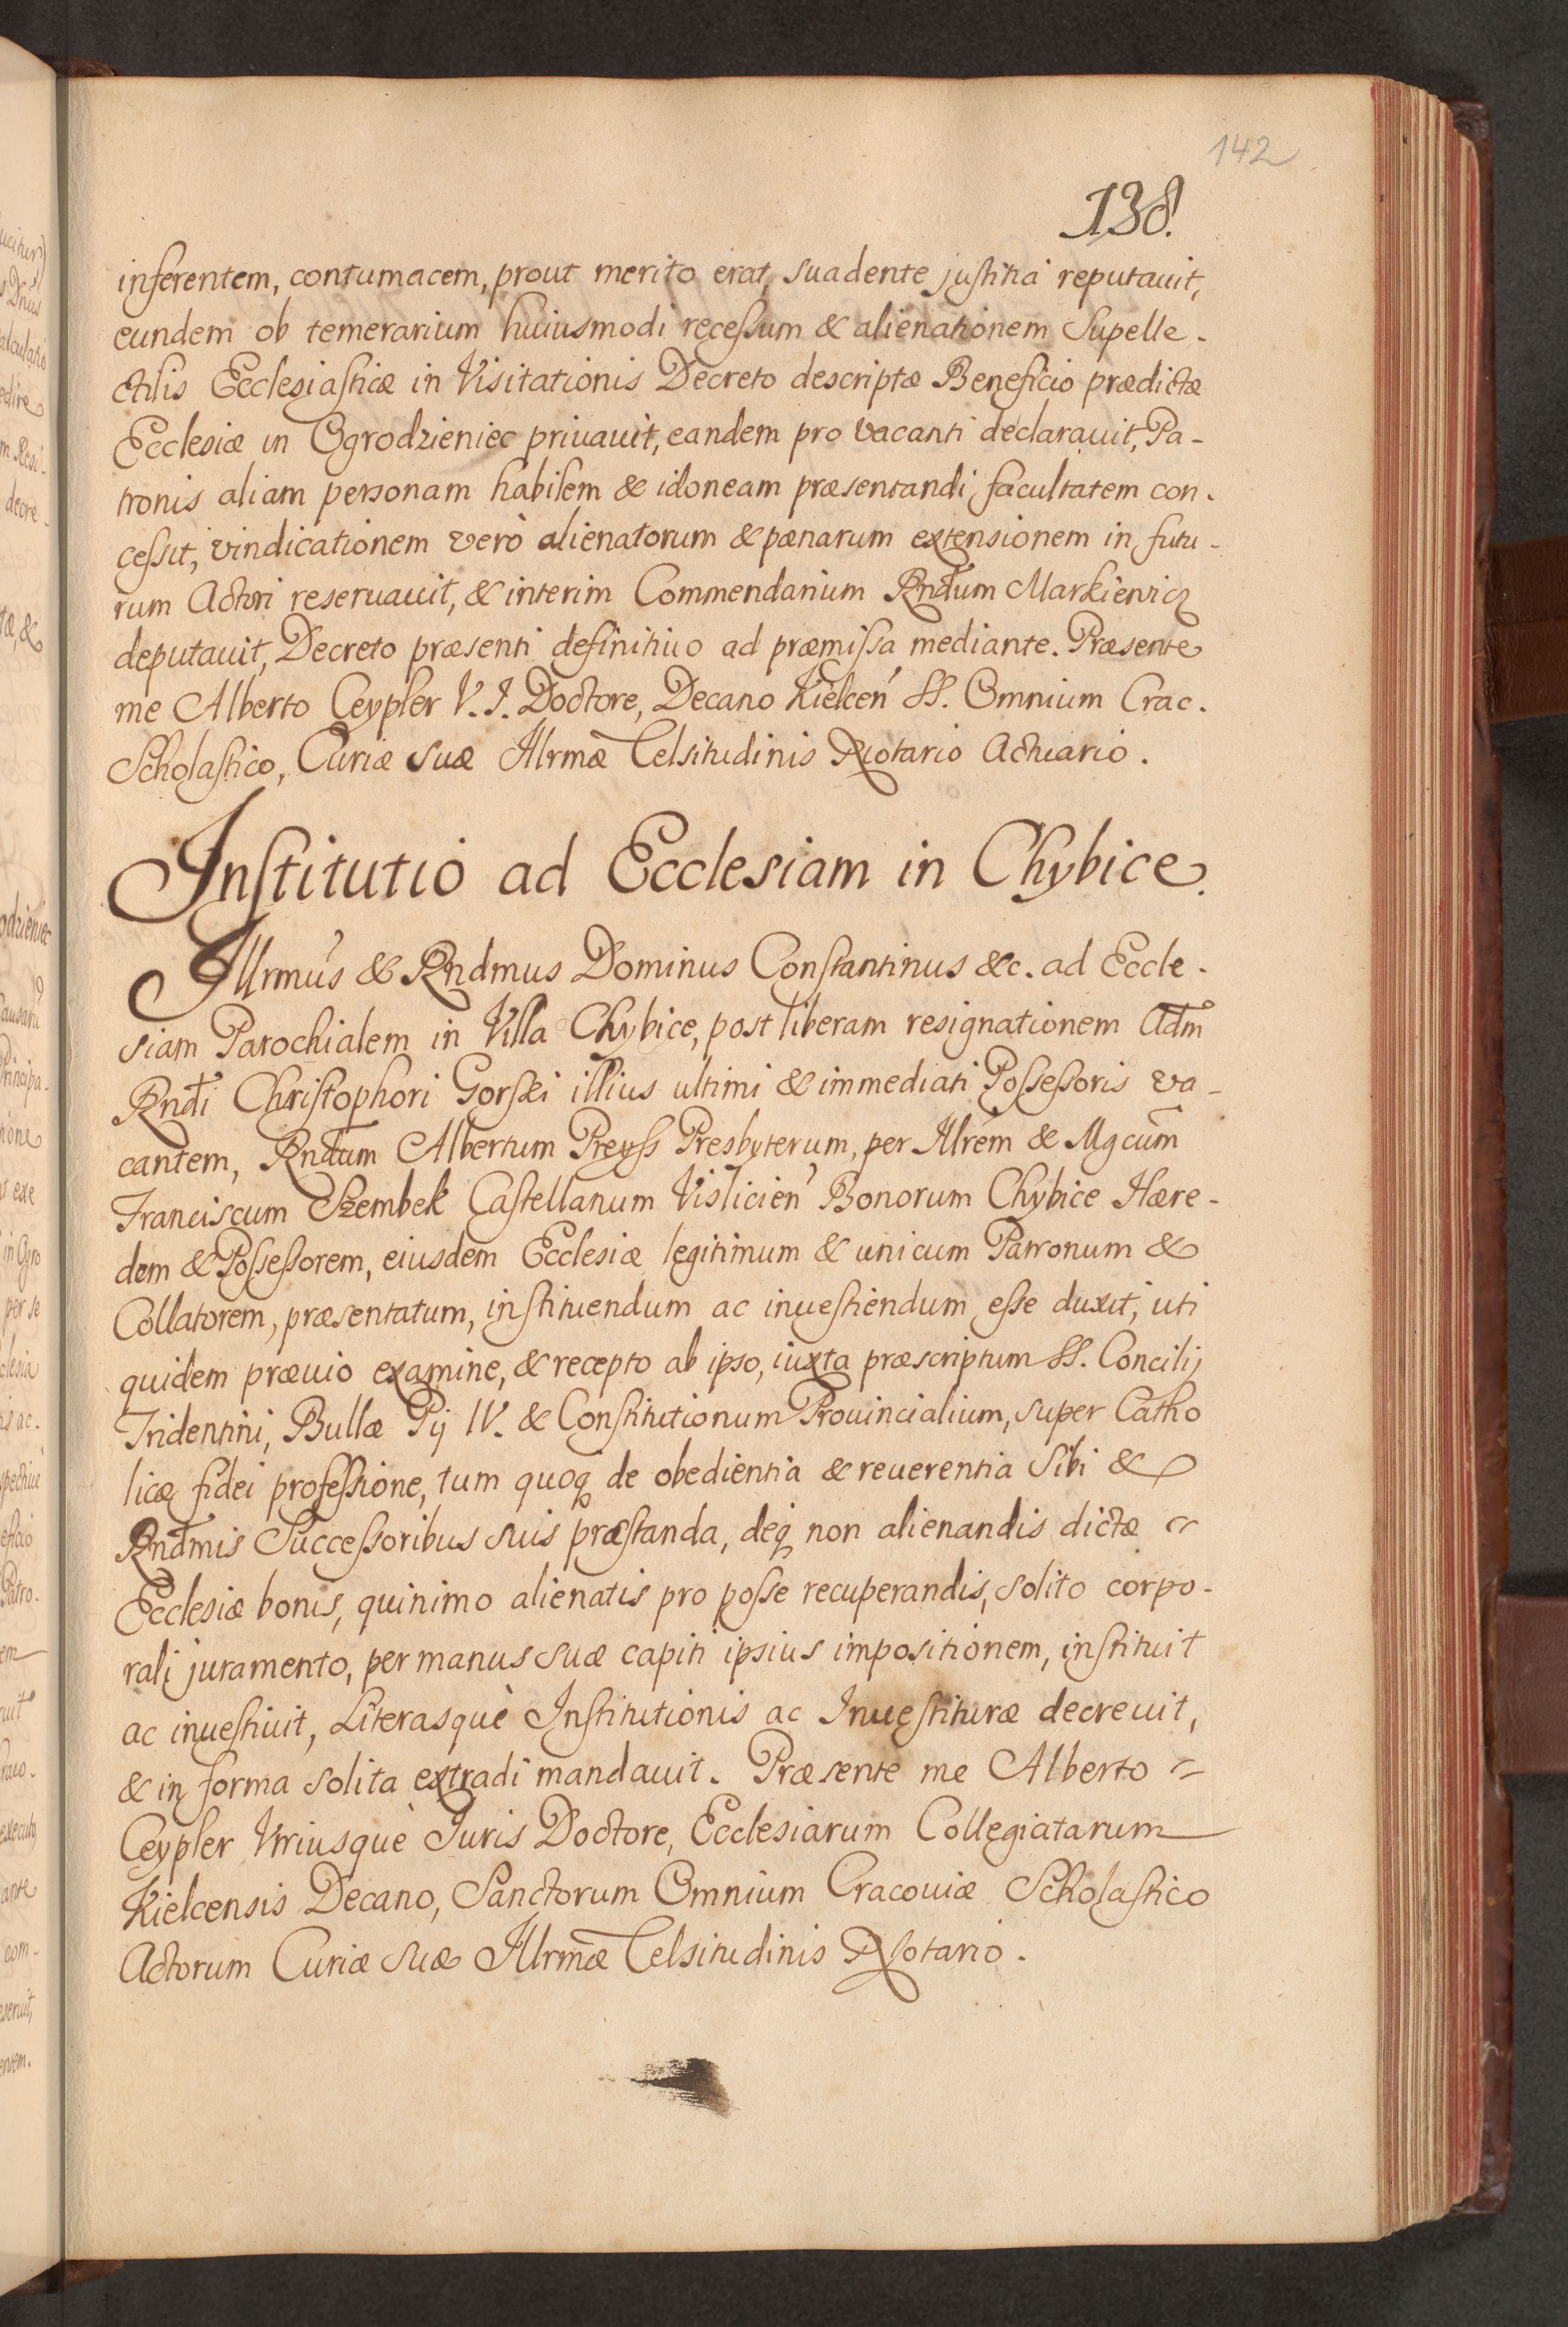 142
138.
inferentem, contumacem, prout merito erat, suadente justitia reputauit,
eundem ob temerarium huiusmodi recessum & alienationem Supelle-
ctilis Ecclesiasticæ in Visitationis Decreto descriptæ Beneficio prædictæ
Ecclesiæ in Ogrodzieniec priuauit, eandem pro vacanti declarauit, Pa-
tronis aliam personam habilem & idoneam præsentandi facultatem con-
cessit, vindicationem verò alienatorum & pænarum extensionem in futu-
rum Actori reseruauit, & interim Commendarium Rndum Markiewicz
deputauit, Decreto præsenti definitiuo ad præmissa mediante. Præsente
me Alberto Ceypler V. J. Doctore, Decano Kielcen SS. Omnium Crac.
Scholastico, Curiæ suæ Illrmæ Celsitudinis Notario Actuario.
Institutio ad Ecclesiam in Chybice.
Illrmus & Rndmus Dominus Constantinus &c. ad Eccle-
siam Parochialem in Villa Chybice, post liberam resignationem Adm
Rndi Christophori Gorski illius ultimi & immediati Possessoris va-
cantem, Rndum Albertum Preyss Presbyterum, per Illrem & Mgcum
Franciscum Szembek Castellanum Vislicien Bonorum Chybice Hære-
dem & Possessorem, eiusdem Ecclesiæ legitimum & unicum Patronum &
Collatorem, præsentatum, instituendum ac inuestiendum esse duxit, uti
quidem præuio examine, & recepto ab ipso, iuxta præscriptum SS. Concilij
Tridentini, Bullæ Pij IV. & Constitutionum Prouincialium, super Catho
licæ fidei professione, tum quoq de obedientia & reuerentia Sibi &
Rndmis Successoribus suis præstanda, deq non alienandis dictæ
Ecclesiæ bonis, quinimo alienatis pro posse recuperandis, solito corpo-
rali juramento, per manus suæ capiti ipsius impositionem, instituit
ac inuestiuit, Literasquè Institutionis ac Inuestituræ decreuit,
& in forma solita extradi mandauit. Præsente me Alberto
Ceypler Vtriusquè Juris Doctore, Ecclesiarum Collegiatarum
Kielcensis Decano, Sanctorum Omnium Cracouiæ Scholastico
Actorum Curiæ suæ Illrmæ Celsitudinis Notario.